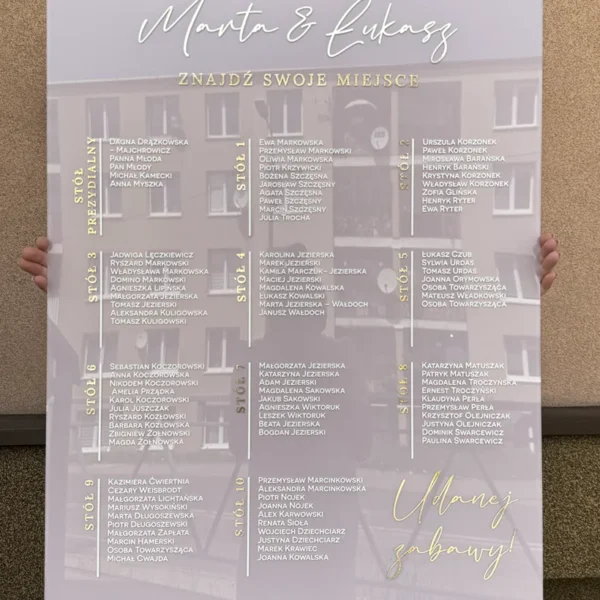 Marta & Łukasz
ZNAJDŹ SWOJE MIEJSCE
STÓŁ PREZYDIALNY
DAGNA DRĄŻKOWSKA
– MAJCHROWICZ
PANNA MŁODA
PAN MŁODY
MICHAŁ KAMECKI
ANNA MYSZKA
STÓŁ 1
EWA MARKOWSKA
PRZEMYSŁAW MARKOWSKI
OLIWIA MARKOWSKA
PIOTR KRZYWICKI
BOŻENA SZCZĘSNA
JAROSŁAW SZCZĘSNY
AGATA SZCZĘSNA
PAWEŁ SZCZĘSNY
MARCIN SZCZĘSNY
JULIA TROCHA
STÓŁ 2
URSZULA KORZONEK
PAWEŁ KORZONEK
MIROSŁAWA BARAŃSKA
HENRYK BARAŃSKI
KRYSTYNA KORZONEK
WŁADYSŁAW KORZONEK
ZOFIA GLIŃSKA
HENRYK RYTER
EWA RYTER
STÓŁ 3
JADWIGA LĘCZKIEWICZ
RYSZARD MARKOWSKI
WŁADYSŁAWA MARKOWSKA
DOMINO MARKOWSKI
AGNIESZKA LIPIŃSKA
MAŁGORZATA JEZIERSKA
TOMASZ JEZIERSKI
ALEKSANDRA KULIGOWSKA
TOMASZ KULIGOWSKI
STÓŁ 4
KAROLINA JEZIERSKA
MAREK JEZIERSKI
KAMILA MARCZUK - JEZIERSKA
MACIEJ JEZIERSKI
MAGDALENA KOWALSKA
ŁUKASZ KOWALSKI
MARTA JEZIERSKA – WAŁDOCH
JANUSZ WAŁDOCH
STÓŁ 5
ŁUKASZ CZUB
SYLWIA URDAS
TOMASZ URDAS
JOANNA ORYMOWSKA
OSOBA TOWARZYSZĄCA
MATEUSZ WŁADKOWSKI
OSOBA TOWARZYSZĄCA
STÓŁ 6
SEBASTIAN KOCZOROWSKI
ANNA KOCZOROWSKA
NIKODEM KOCZOROWSKI
AMELIA PRZĄDKA
KAROL KOCZOROWSKI
JULIA JUSZCZAK
RYSZARD KOZŁOWSKI
BARBARA KOZŁOWSKA
ZBIGNIEW ŻOŁNOWSKI
MAGDA ŻOŁNOWSKA
STÓŁ 7
MAŁGORZATA JEZIERSKA
KATARZYNA JEZIERSKA
ADAM JEZIERSKI
MAGDALENA SAKOWSKA
JAKUB SAKOWSKI
AGNIESZKA WIKTORUK
LESZEK WIKTORUK
BEATA JEZIERSKA
BOGDAN JEZIERSKI
STÓŁ 8
KATARZYNA MATUSZAK
PATRYK MATUSZAK
MAGDALENA TROCZYŃSKA
ERNEST TROCZYŃSKI
KLAUDYNA PERŁA
PRZEMYSŁAW PERŁA
KRZYSZTOF OLEJNICZAK
JUSTYNA OLEJNICZAK
DOMINIK SWARCEWICZ
PAULINA SWARCEWICZ
STÓŁ 9
KAZIMIERA ĆWIERTNIA
CEZARY WEISBRODT
MAŁGORZATA LICHTAŃSKA
MARIUSZ WYSOKIŃSKI
MARTA DŁUGOSZEWSKA
PIOTR DŁUGOSZEWSKI
MAŁGORZATA ZAPŁATA
MARCIN HAMERSKI
OSOBA TOWARZYSZĄCA
MICHAŁ CWAJDA
STÓŁ 10
PRZEMYSŁAW MARCINKOWSKI
ALEKSANDRA MARCINKOWSKA
PIOTR NOJEK
JOANNA NOJEK
ALEX KARWOWSKI
RENATA SIOŁA
WOJCIECH DZIECHCIARZ
JUSTYNA DZIECHCIARZ
MAREK KRAWIEC
JOANNA KOWALSKA
Udanej
zabawy!